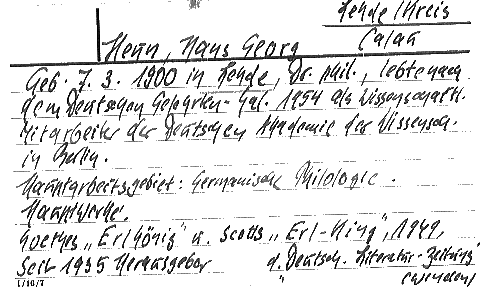 Zehde / Kreis
Calau
Henn, Hans Georg
Geb. 7. 3. 1900 in Zehde, Dr. phil., lebte nach
dem Deutschen Gelehrten-Kal. 1954 als Wissenschaftl.
Mitarbeiter der Deutschen Akademie der Wissensch.
in Berlin.
Hauptarbeitsgebiet: Germanische Philologie.
Hauptwerke:
Goethes „Erlkönig" u. Scotts „Erl-King", 1949,
Seit 1935 Herausgeber d. Deutsch. Literatur-Zeitung
1/10/7